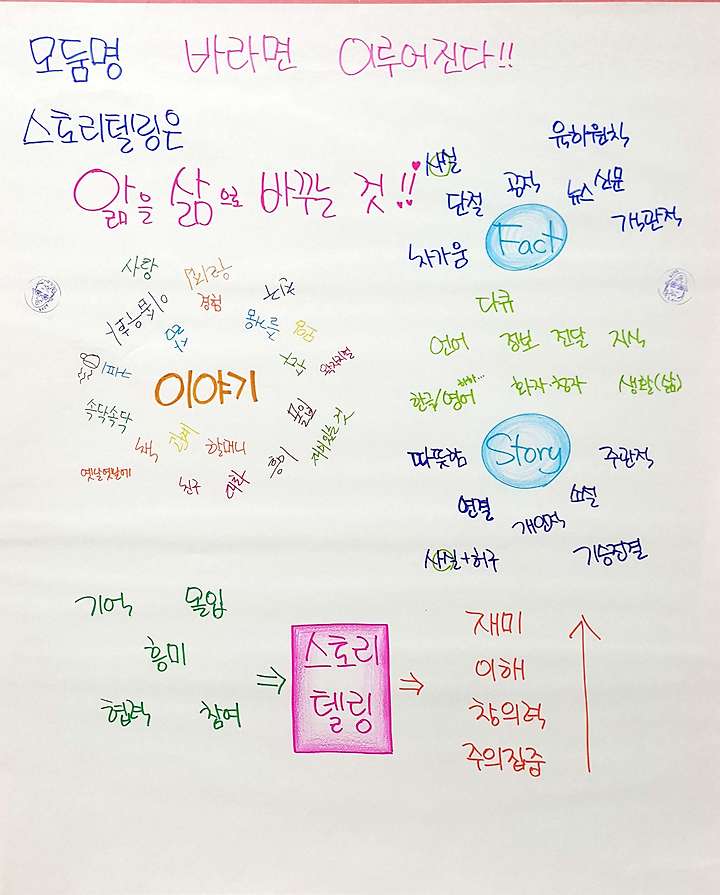 모둠명 바라면 이루어진다!!
스토리텔링은
앎을 삶으로 바꾸는 것!!
사랑
경험
이야기
속닥속닥
책
관계
할머니
옛날옛날에
친구
대화
향기
재미있는 것
육하원칙
사실
단절
공적
뉴스 신문
객관적
차가움
Fact
다큐
언어 정보 전달 지식
한글/영어 화자·청자 생활(삶)
따뜻함
Story
주관적
연결
개인적
소설
사실+허구
기승전결
기억 몰입
흥미
협력 참여
⇒ 스토리텔링 ⇒
재미
이해
창의력
주의집중